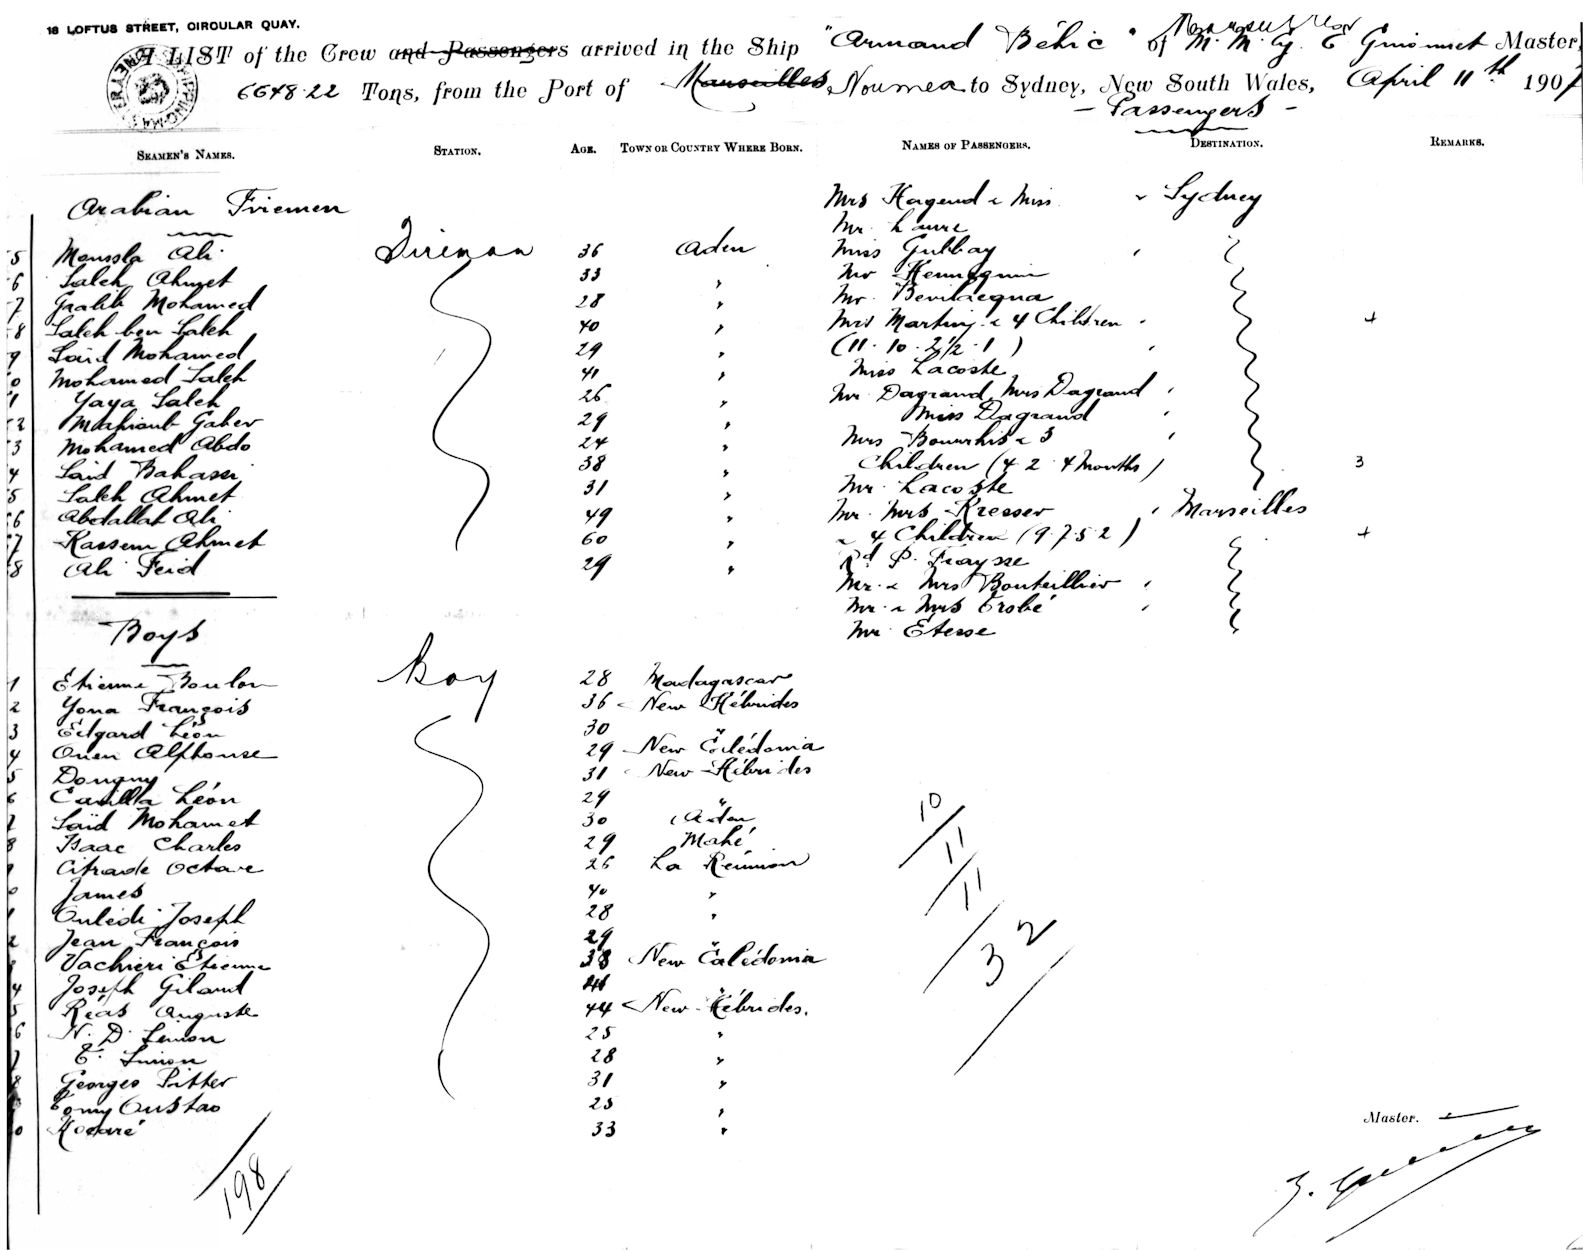 18 LOFTUS STREET, CIRCULAR QUAY.
A LIST of the Crew and Passengers arrived in the Ship "Armand Béhic" of M. M. Cy. E Guionnet Master,
6648.22 Tons, from the Port of Marseilles, Noumea to Sydney, New South Wales, April 11th 1907
- Passengers -
SEAMEN'S NAMES. STATION. AGE. TOWN OR COUNTRY WHERE BORN. NAMES OF PASSENGERS. DESTINATION. REMARKS.
Arabian Friemen
Mrs Hagend & Miss " Sydney
Mr. Laure
5 Moussa Ali Fireman 36 Aden Miss Gubbay "
6 Saleh Ahmet 33 " Mr Hennequin
7 Gralib Mohamed 28 " Mr. Bevilacqua
8 Saleh ben Saleh 40 " Mrs Martiny & 4 Children " 4
9 Saïd Mohamed 29 " (11. 10. 2 1/2. 1) "
0 Mohamed Saleh 41 " Miss Lacoste
1 Yaya Saleh 26 " Mr Dagrand, Mrs Dagrand "
2 Mahioub Gaher 29 " Miss Dagrand "
3 Mohamed Abdo 24 " Mrs Bourhis & 3 "
4 Saïd Bahassi 38 " Children (4 2 4 Months) 3
5 Saleh Ahmet 31 " Mr. Lacoste
6 Abdallah Ali 49 " Mr. Mrs Kresser " Marseilles
7 Kassem Ahmet 60 " & 4 Children (9. 7. 5. 2) 4
8 Ali Feid 29 " Rd P. Fraysse
Mr. & Mrs Bouteillier "
Mr. & Mrs Erobé "
Mr Etesse
Boys
1 Etienne Boulon Boy 28 Madagascar
2 Yona François 36 New Hébrides
3 Edgard Léon 30 "
4 Ouen Alphonse 29 New Calédonia
5 Dougny 31 New Hébrides
6 Camilla Léon 29 "
7 Saïd Mohamet 30 Aden
8 Isaac Charles 29 Mahé
9 Citrade Octave 26 La Réunion
0 James 40 "
1 Oulédi Joseph 28 "
2 Jean François 29 "
Vachieri Etienne 38 New Calédonia
4 Joseph Giland "
5 Réas Auguste 44 New Hébrides.
6 N. D. Simon 25 "
7 E. Simon 28 "
8 Georges Pitter 31 "
Tomy Oustao 25 "
0 Kocaré 33 "
10
11
11
32
198
Master.